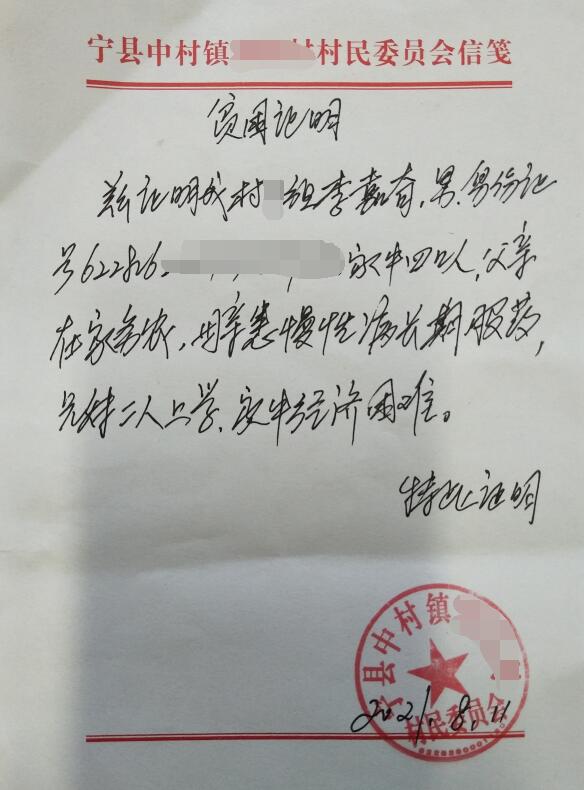 宁县中村镇 村村民委员会信笺
贫困证明
兹证明我村 组李嘉奇,男,身份证
号622826 家中四口人,父亲
在家务农,母亲患慢性病长期服药,
兄妹二人上学,家中经济困难。
特此证明
宁县中村镇
村民委员会
2021.8.11